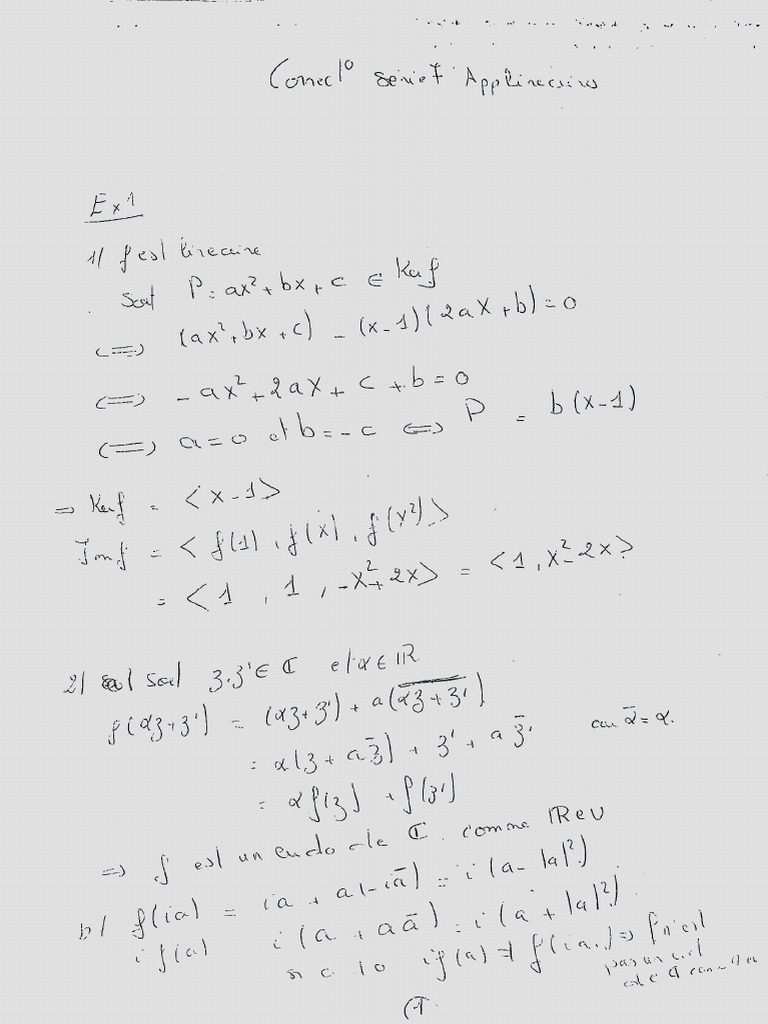 Correct° serie 7 App lineaires
Ex 1
1/ f est lineaire
Soit P = ax² + bx + c ∈ Ker f
<=> (ax² + bx + c) - (x-1)(2aX + b) = 0
<=> -ax² + 2aX + c + b = 0
<=> a = 0 et b = -c <=> P = b(x-1)
=> Ker f = <x-1>
Im f = <f(1), f(x), f(x²)>
= <1, 1, -X² + 2x> = <1, x² - 2x>
2/ soit z, z' ∈ ℂ et α ∈ ℝ
f(αz + z') = (αz + z') + a(\overline{αz + z'})
= α(z + a z̄) + z' + a z̄' car ᾱ = α.
= α f(z) + f(z')
=> f est un endo de ℂ comme ℝ ev
b/ f(ia) = ia + a(-iā) = i(a - |a|²)
i f(a) i(a + aā) = i(a + |a|²)
if(a) ≠ f(ia) => f n'est
pas un
(1